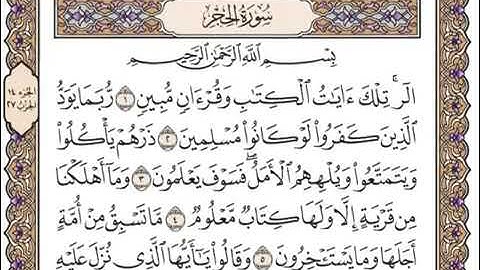 سُورَةُ الحِجْرِ
الجزء ١٤
الحزب ٢٧
بِسْمِ اللَّهِ الرَّحْمَٰنِ الرَّحِيمِ
الٓر ۚ تِلْكَ ءَايَٰتُ الْكِتَٰبِ وَقُرْءَانٍ مُّبِينٍ ١ رُّبَمَا يَوَدُّ
الَّذِينَ كَفَرُوا لَوْ كَانُوا مُسْلِمِينَ ٢ ذَرْهُمْ يَأْكُلُوا
وَيَتَمَتَّعُوا وَيُلْهِهِمُ الْأَمَلُ ۖ فَسَوْفَ يَعْلَمُونَ ٣ وَمَا أَهْلَكْنَا
مِن قَرْيَةٍ إِلَّا وَلَهَا كِتَابٌ مَّعْلُومٌ ٤ مَّا تَسْبِقُ مِنْ أُمَّةٍ
أَجَلَهَا وَمَا يَسْتَـْٔخِرُونَ ٥ وَقَالُوا يَٰٓأَيُّهَا الَّذِي نُزِّلَ عَلَيْهِ